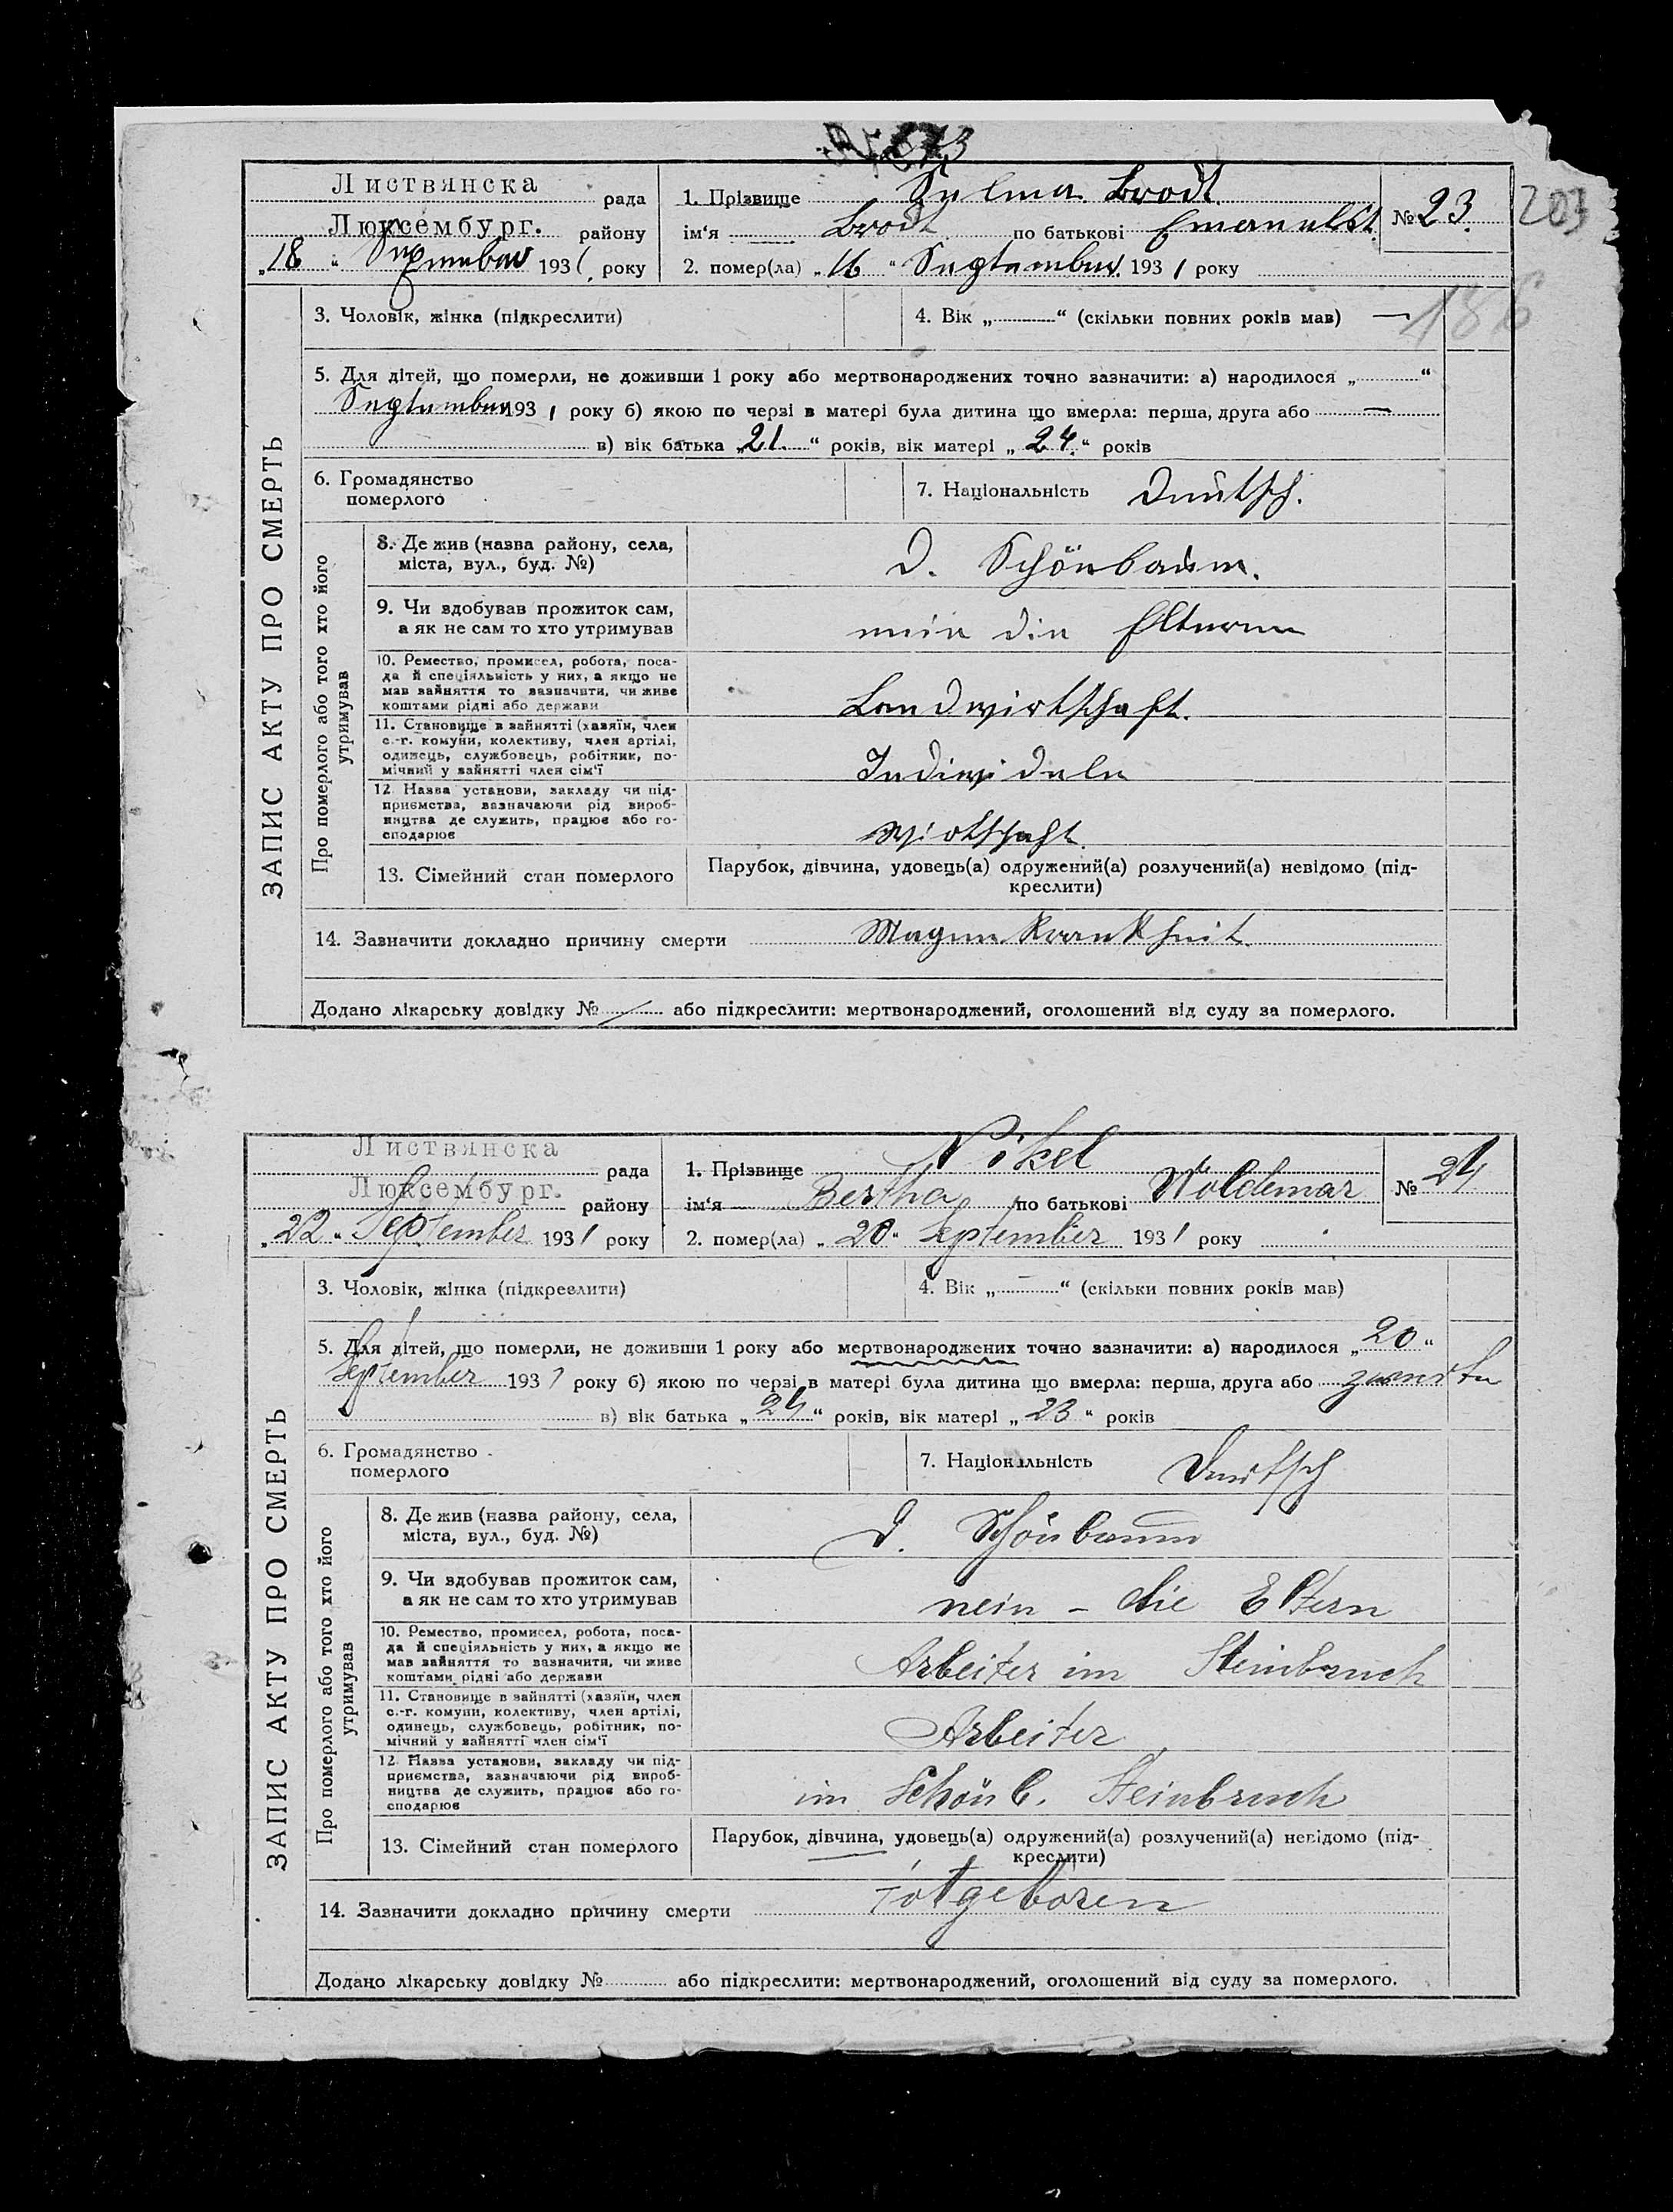 Листвянска рада
Люксембург. району
„18“ September 1931. року
1. Прізвище Selma Brodt
ім‘я Brodt по батькові Emanuel
№ 23.
203
2. помер(ла) „16“ September 1931 року
186
3. Чоловік, жінка (підкреслити)
4. Вік „—“ (скільки повних років мав) —
5. Для дітей, що померли, не доживши 1 року або мертвонароджених точно зазначити: а) народилося „ “
September 1931 року б) якою по черзі в матері була дитина що вмерла: перша, друга або —
в) вік батька „21.“ років, вік матері „24.“ років
6. Громадянство
померлого
7. Національність Deutsch.
ЗАПИС АКТУ ПРО СМЕРТЬ
Про померлого або того хто його
утримував
8. Де жив (назва району, села,
міста, вул., буд. №)
D. Schönbaum.
9. Чи здобував прожиток сам,
а як не сам то хто утримував
nein die Elteren
10. Ремество, промисел, робота, поса-
да й спеціяльність у них, а якщо не
мав зайняття то зазначити, чи живе
коштами рідні або держави
Landwirtschaft.
11. Становище в зайнятті (хазяїн, член
с.-г. комуни, колективу, член артілі,
одинець, службовець, робітник, по-
мічний у зайнятті член сім‘ї
Indiwiduele
12. Назва установи, закладу чи під-
приємства, зазначаючи рід вироб-
ництва де служить, працює або го-
сподарює
wirtschaft.
13. Сімейний стан померлого
Парубок, дівчина, удовець(а) одружений(а) розлучений(а) невідомо (під-
креслити)
14. Зазначити докладно причину смерти Magenkrankheit.
Додано лікарську довідку № або підкреслити: мертвонароджений, оголошений від суду за померлого.
Листвянска рада
Люксембург. району
„22“ September 1931 року
1. Прізвище Nikel
ім‘я Bertha по батькові Woldemar
№ 24
2. помер(ла) „20“ September 1931 року
3. Чоловік, жінка (підкреслити)
4. Вік „—“ (скільки повних років мав)
5. Для дітей, що померли, не доживши 1 року або мертвонароджених точно зазначити: а) народилося „20“
September 1931 року б) якою по черзі в матері була дитина що вмерла: перша, друга або zweite
в) вік батька „24“ років, вік матері „23“ років
6. Громадянство
померлого
7. Національність Deutsch
ЗАПИС АКТУ ПРО СМЕРТЬ
Про померлого або того хто його
утримував
8. Де жив (назва району, села,
міста, вул., буд. №)
D. Schönbaum
9. Чи здобував прожиток сам,
а як не сам то хто утримував
nein – die Eltern
10. Ремество, промисел, робота, поса-
да й спеціяльність у них, а якщо не
мав зайняття то зазначити, чи живе
коштами рідні або держави
Arbeiter im Steinbruch
11. Становище в зайнятті (хазяїн, член
с.-г. комуни, колективу, член артілі,
одинець, службовець, робітник, по-
мічний у зайнятті член сім‘ї
Arbeiter
12. Назва установи, закладу чи під-
приємства, зазначаючи рід вироб-
ництва де служить, працює або го-
сподарює
im Schönb. Steinbruch
13. Сімейний стан померлого
Парубок, дівчина, удовець(а) одружений(а) розлучений(а) невідомо (під-
креслити)
14. Зазначити докладно причину смерти Totgeboren
Додано лікарську довідку № або підкреслити: мертвонароджений, оголошений від суду за померлого.